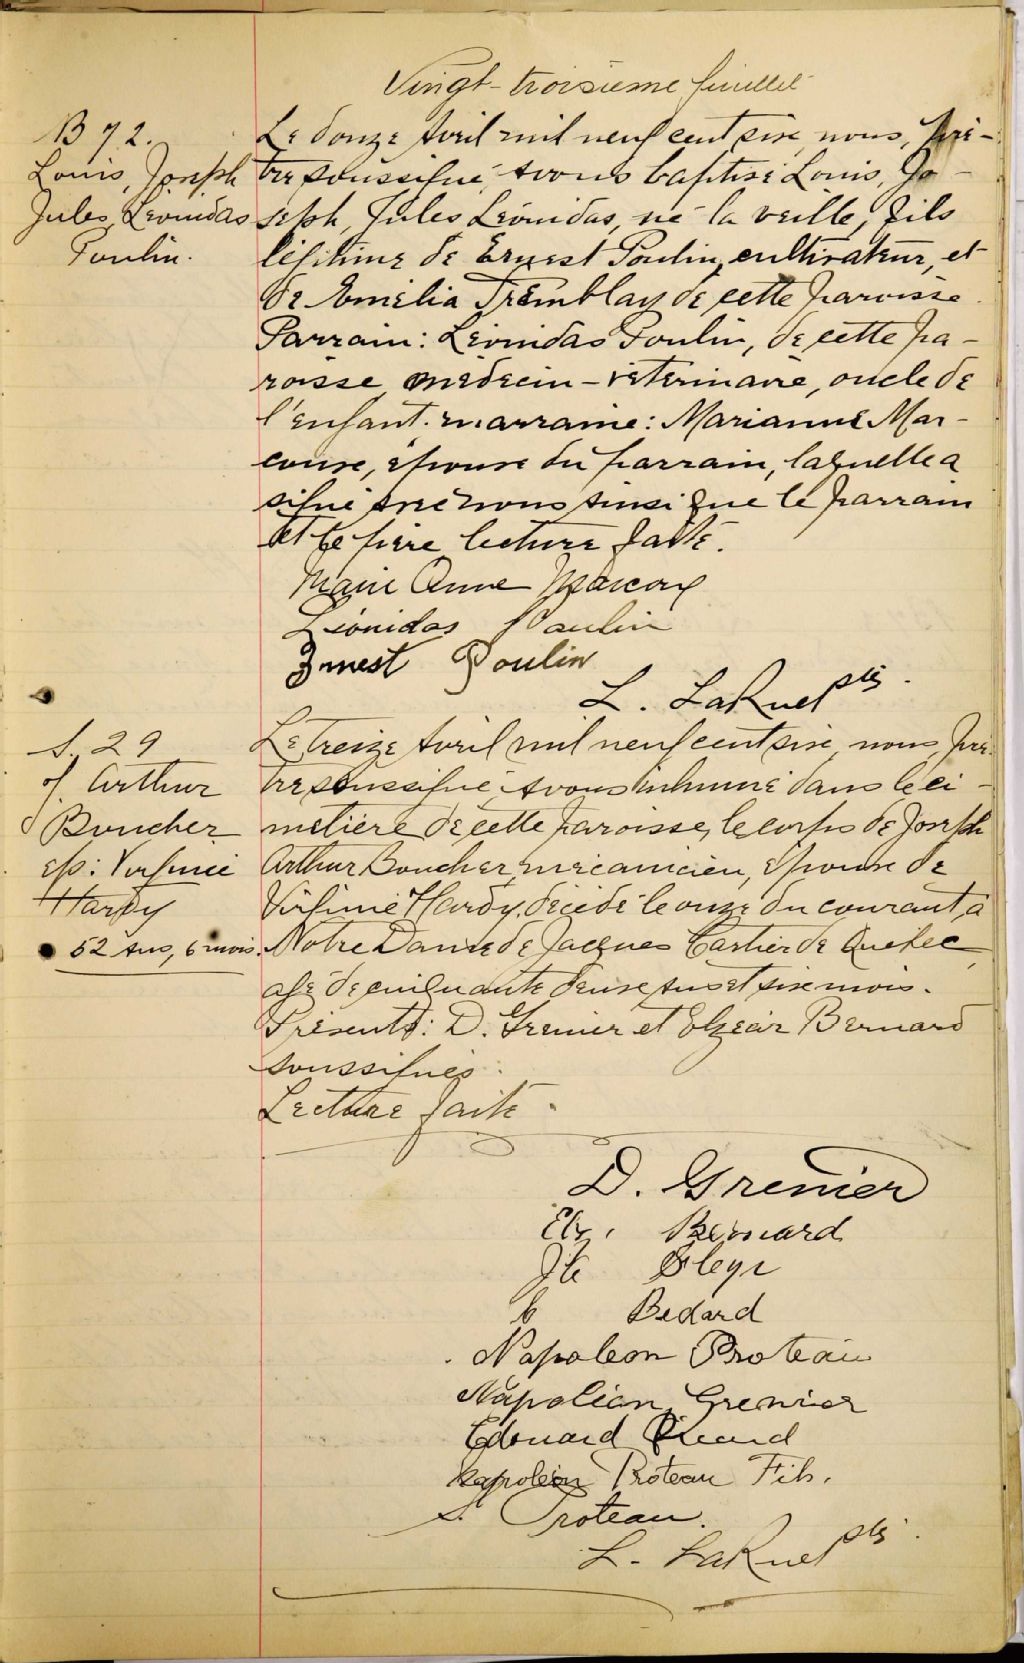 Vingt-troisième feuillet
B 72.
Louis, Joseph
Jules, Léonidas
Poulin.
Le douze Avril mil neuf cent six, nous, prê-
tre soussigné, avons baptisé Louis, Jo-
seph, Jules Léonidas, né la veille, fils
légitime de Ernest Poulin, cultivateur, et
de Emélia Tremblay de cette paroisse.
Parrain: Léonidas Poulin, de cette pa-
roisse, médecin-vétérinaire, oncle de
l'enfant. marraine: Marianne Mar-
coux, épouse du parrain, laquelle a
signé avec nous ainsi que le parrain
et le père lecture faite.
Marie Anne Marcoux
Léonidas Poulin
Ernest Poulin
L. LaRue ptr.
S. 29
J. Arthur
Boucher
ep: Virginie
Hardy
52 ans, 6 mois.
Le treize Avril mil neuf cent six, nous, prê-
tre soussigné, avons inhumé dans le ci-
metière de cette paroisse, le corps de Joseph
Arthur Boucher, mécanicien, époux de
Virginie Hardy, décédé le onze du courant, à
Notre Dame de Jacques Cartier de Québec,
agé de cinquante deux ans et six mois.
Présents: D. Grenier et Elzéar Bernard
soussignés.
Lecture faite.
D. Grenier
Elz. Bernard
Jte
Bedard
Napoleon Proteau
Napoléon Grenier
Edouard Picard
Napoléon Proteau Fils.
S. Proteau.
L. LaRue ptr.